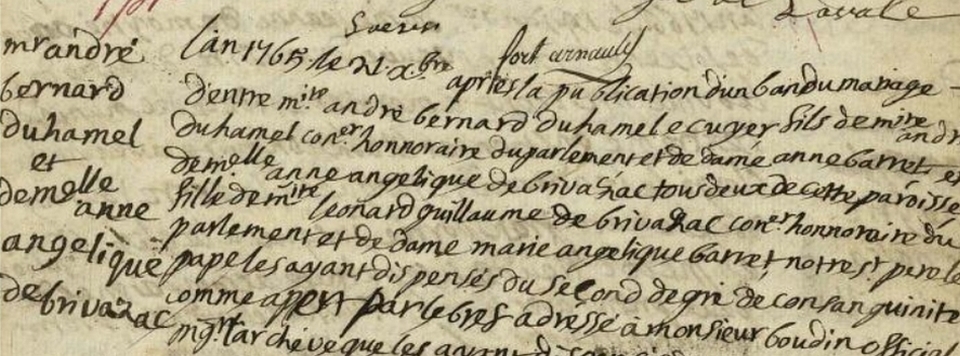 Lavale
mr andré
bernard
duhamel
et
demelle
anne
angelique
de brivazac
fort arnauld
lan 1765 le xbre après la publication dun ban du mariage
dentre mire andré bernard duhamel ecuyer fils de mire andré
duhamel coner honnoraire du parlement et de dame anne barret et
demelle anne angelique de brivazac tous deux de cette paroisse
fille de mire leonard guillaume de brivazac coner honnoraire du
parlement et de dame marie angelique barret notre st pere le
pape les ayant dispensés du second degré de consanguinité
comme apert par le bref adressé à monsieur boudin official
mgr larcheveque les ayant